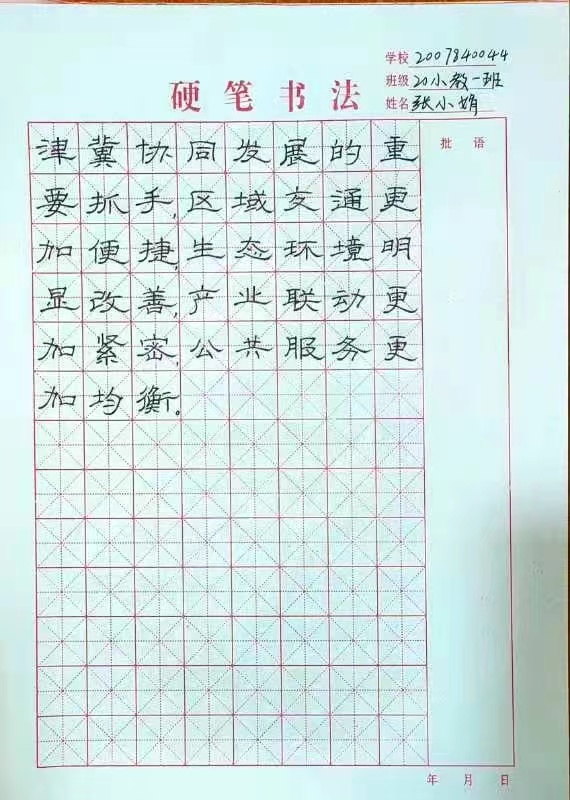 学校 2007840044
硬笔书法 班级 20小教一班
姓名 张小娟
津冀协同发展的重 批语
要抓手,区域交通更
加便捷,生态环境明
显改善,产业联动更
加紧密,公共服务更
加均衡。
年 月 日